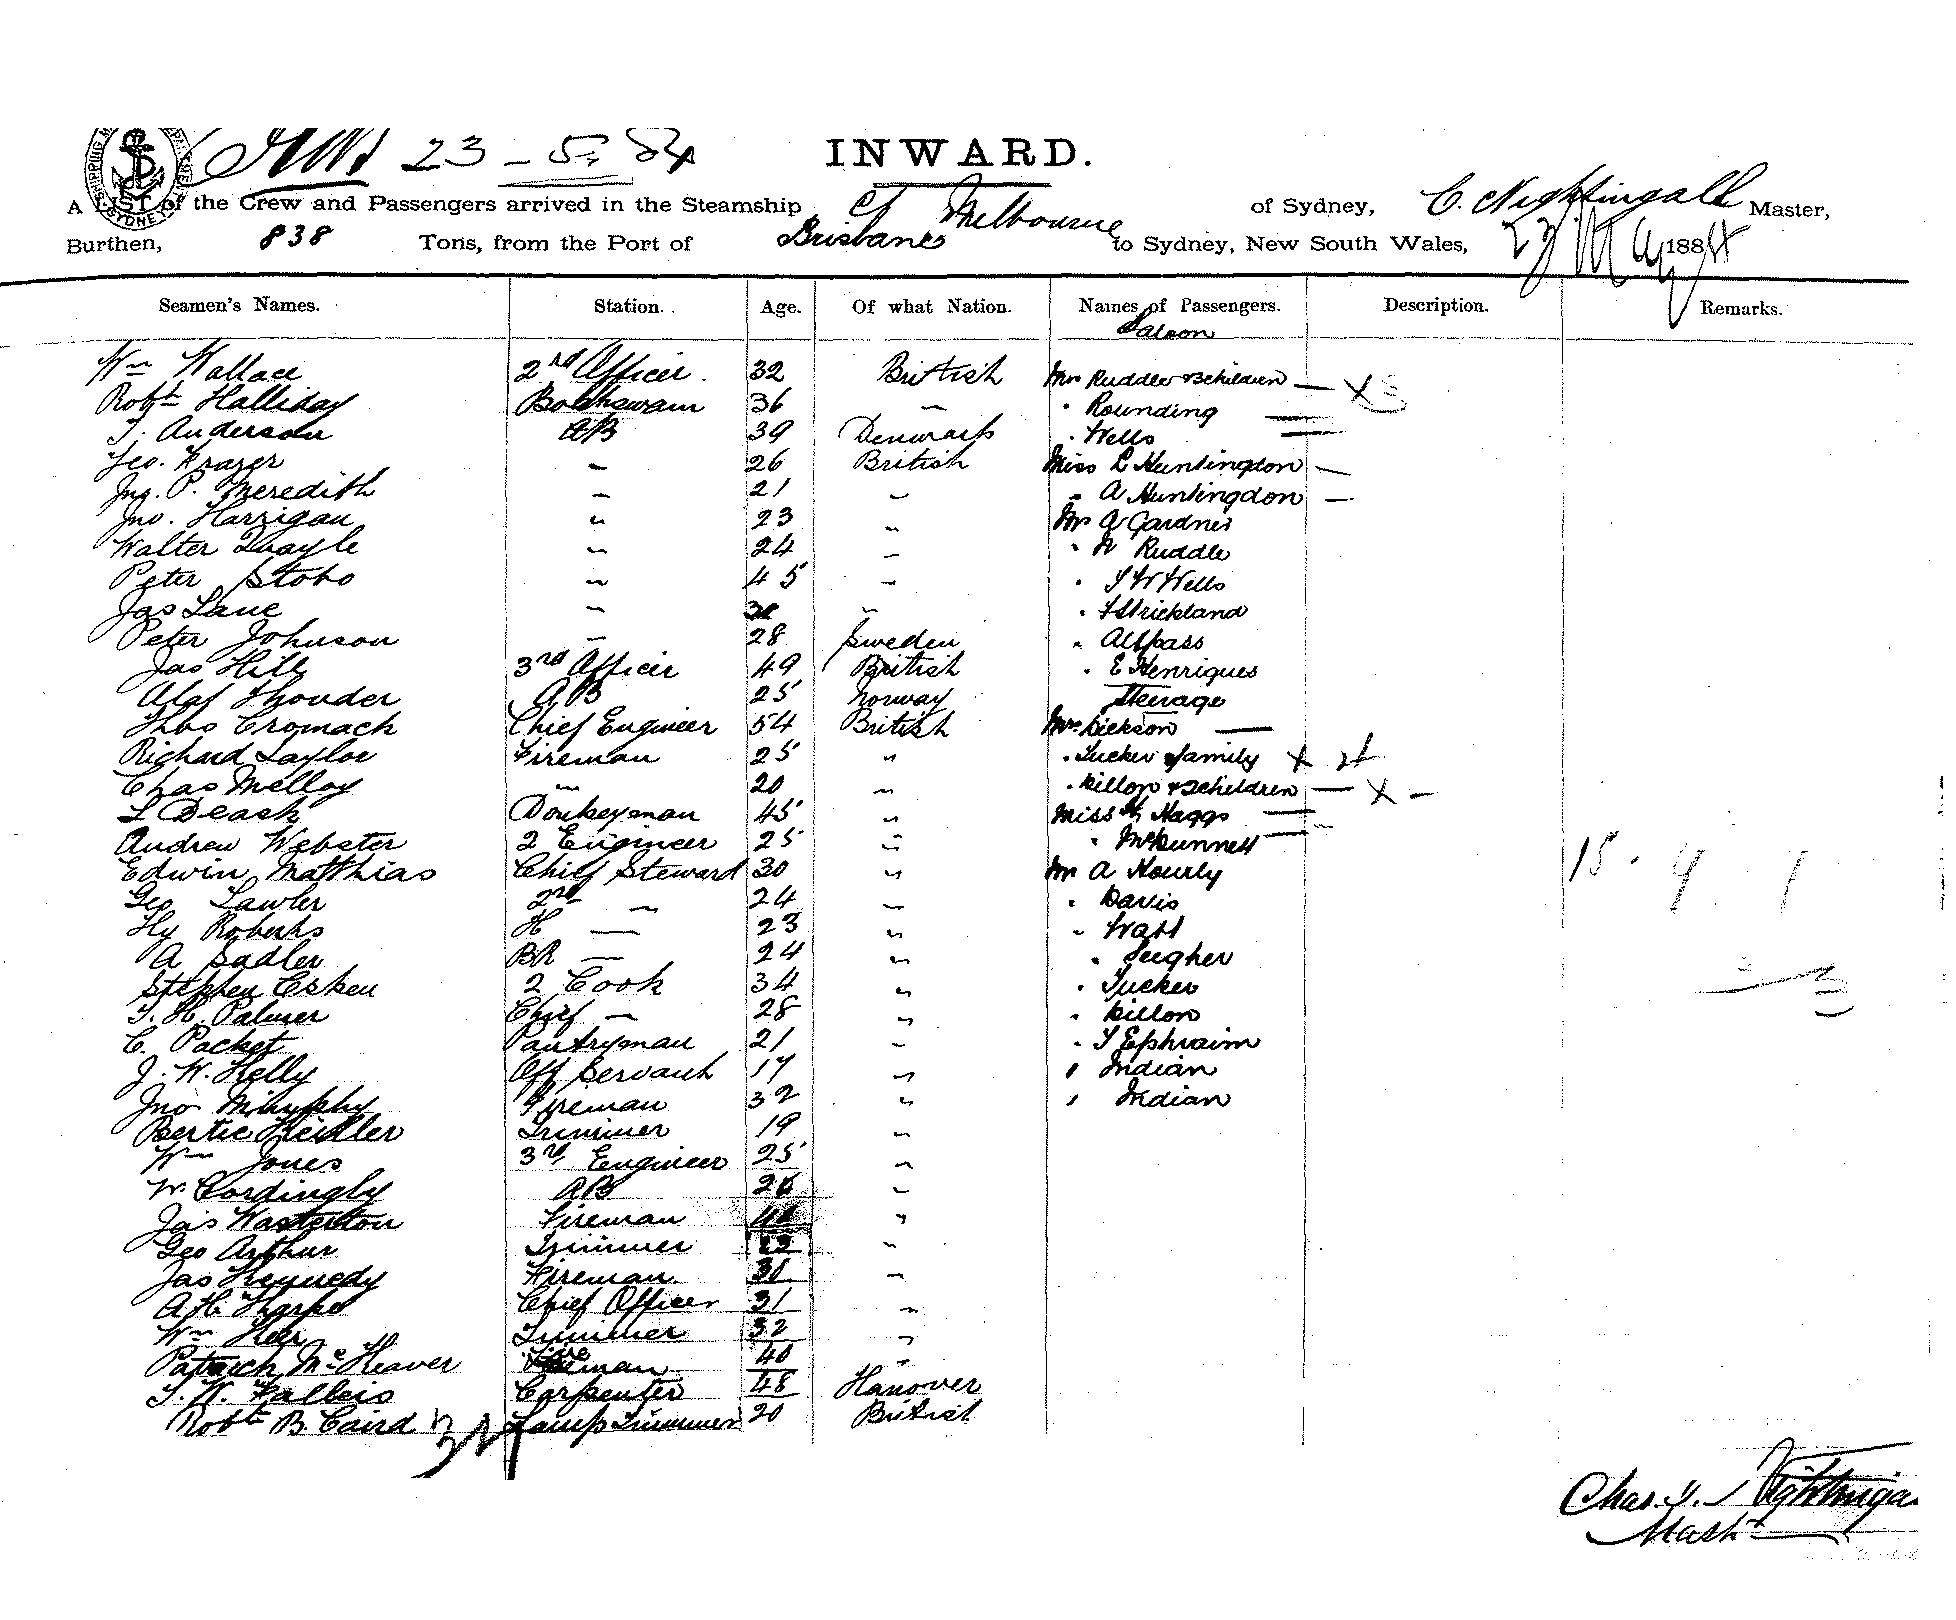 SHIPPING
SYDNEY
23 - 5 - 84
INWARD.
A LIST of the Crew and Passengers arrived in the Steamship Cy Melbourne of Sydney, C. Nightingall Master,
Burthen, 838 Tons, from the Port of Brisbane to Sydney, New South Wales, 23 May 1884
Seamen's Names. Station. Age. Of what Nation. Names of Passengers. Description. Remarks.
Saloon
Wm Wallace 2nd Officer. 32 British Mrs Ruddle & children — X 3
Robt Halliday Boatswain 36 " " Rounding —
J. Anderson AB 39 Denmark " Wells —
Geo. Frazer " 26 British Miss L Huntingdon —
Jno. P. Meredith " 21 " " A Huntingdon —
Jno. Harrigan " 23 " Mr G Gardner
Walter Quayle " 24 " " Ruddle
Peter Stobo " 45 " " J W Wells
Jas Lane " " " Strickland
Peter Johnson " 28 Sweden " Allpass
Jas Hill 3rd Officer 49 British " E Henriques
Olaf AB 25 Norway Steerage
Thos Cromack Chief Engineer 54 British Mrs Dickson —
Richard Taylor Fireman 25 " " Tucker & family X
Chas Melloy " 20 " " Dillon & 2 children — X -
L Deash Donkeyman 45 " Miss Haggs —
Andrew Webster 2 Engineer 25 " " —
Edwin Matthias Chief Steward 30 " Mr A Hourly 15 . 4 1
Geo Lawler 2nd " 24 " " Davis
Hy Roberts — 23 " " Watt
A Sadler — 24 " "
Stephen 2 Cook 34 " " Tucker
J. H. Palmer Chief " 28 " " Dillon
C. Packet Pantryman 21 " " J Ephraim
J. W. Kelly Off Servant 17 " " Indian
Jno Murphy Fireman 32 " " Indian
Bertie Trimmer 19 "
Wm Jones 3rd Engineer 25 "
W. Cordingly AB 26 "
Jas Fireman "
Geo Arthur Trimmer "
Jas Kennedy Fireman "
A H Tharpe Chief Officer 31 "
Wm Trimmer 32 "
Patrick Mc Heaver Fireman 40 "
J. W. Carpenter 48 Hanover
Robt B. Caird Lamp Trimmer 20 British
Chas. Nightinga
Mastr